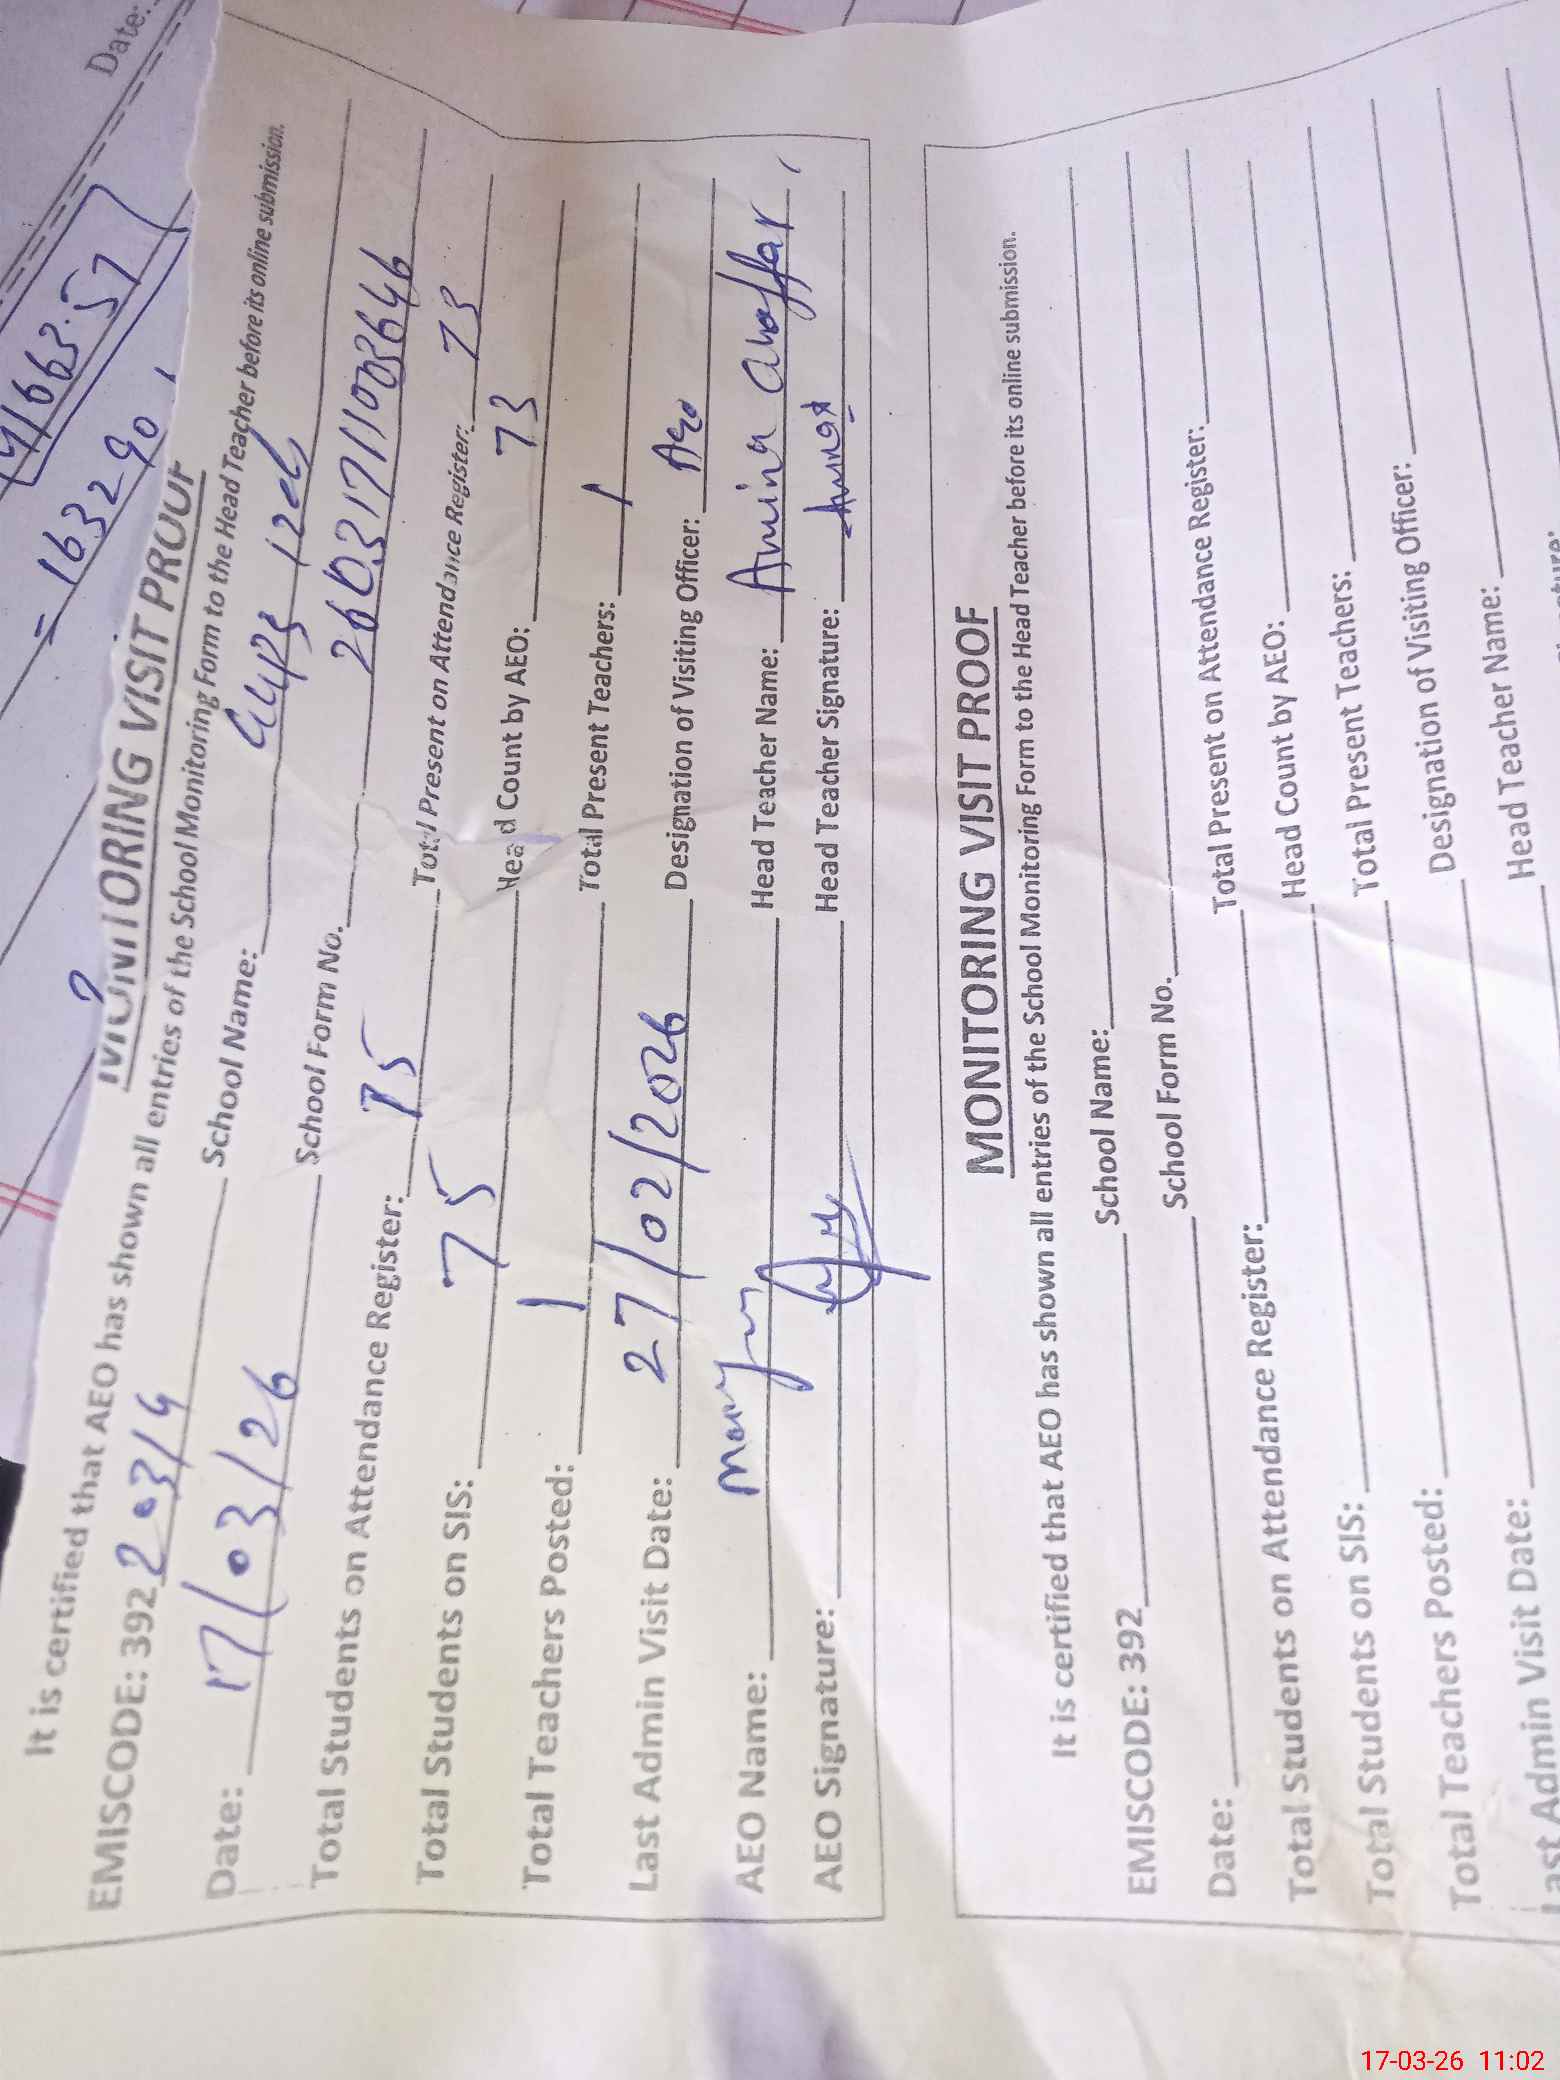 Date:
41663.57
= 163290
MONITORING VISIT PROOF
It is certified that AEO has shown all entries of the School Monitoring Form to the Head Teacher before its online submission.
EMISCODE: 392 20314 School Name: GGPS 12
Date: 17/03/26 School Form No. 2603171103646
Total Students on Attendance Register: 75 Total Present on Attendance Register: 73
Total Students on SIS: 75 Head Count by AEO: 73
Total Teachers Posted: 1 Total Present Teachers: 1
Last Admin Visit Date: 27/02/2026 Designation of Visiting Officer: AEO
AEO Name: Head Teacher Name: Amina Ghaffar
AEO Signature: Head Teacher Signature: Amina
MONITORING VISIT PROOF
It is certified that AEO has shown all entries of the School Monitoring Form to the Head Teacher before its online submission.
EMISCODE: 392 School Name:
Date: School Form No.
Total Students on Attendance Register: Total Present on Attendance Register:
Total Students on SIS: Head Count by AEO:
Total Teachers Posted: Total Present Teachers:
Last Admin Visit Date: Designation of Visiting Officer:
Head Teacher Name:
17-03-26 11:02